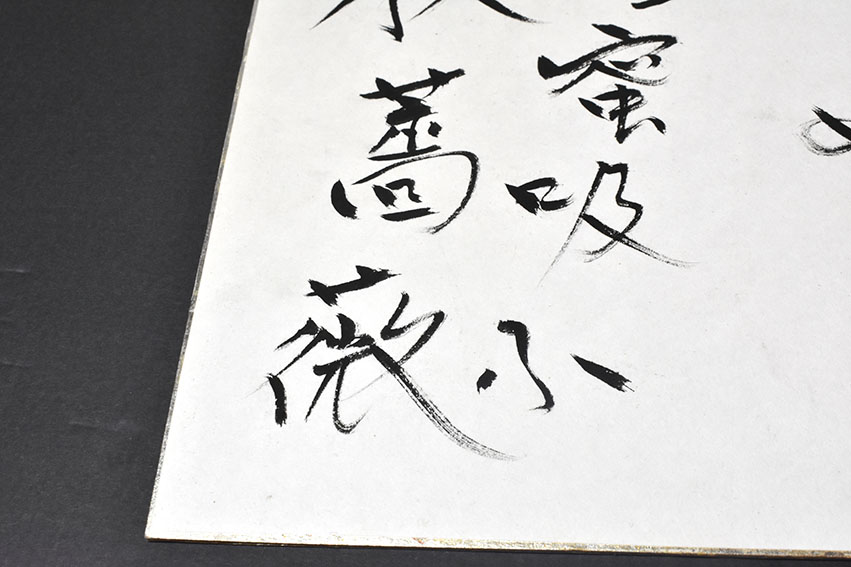 蜜吸ふ
薔薇